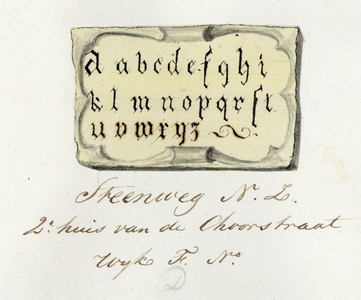 a abcdefghi
klmnopqrſt
uvwxyz
Steenweg N. Z.
2e huis van de Choorstraat
Wyk F. No.
D